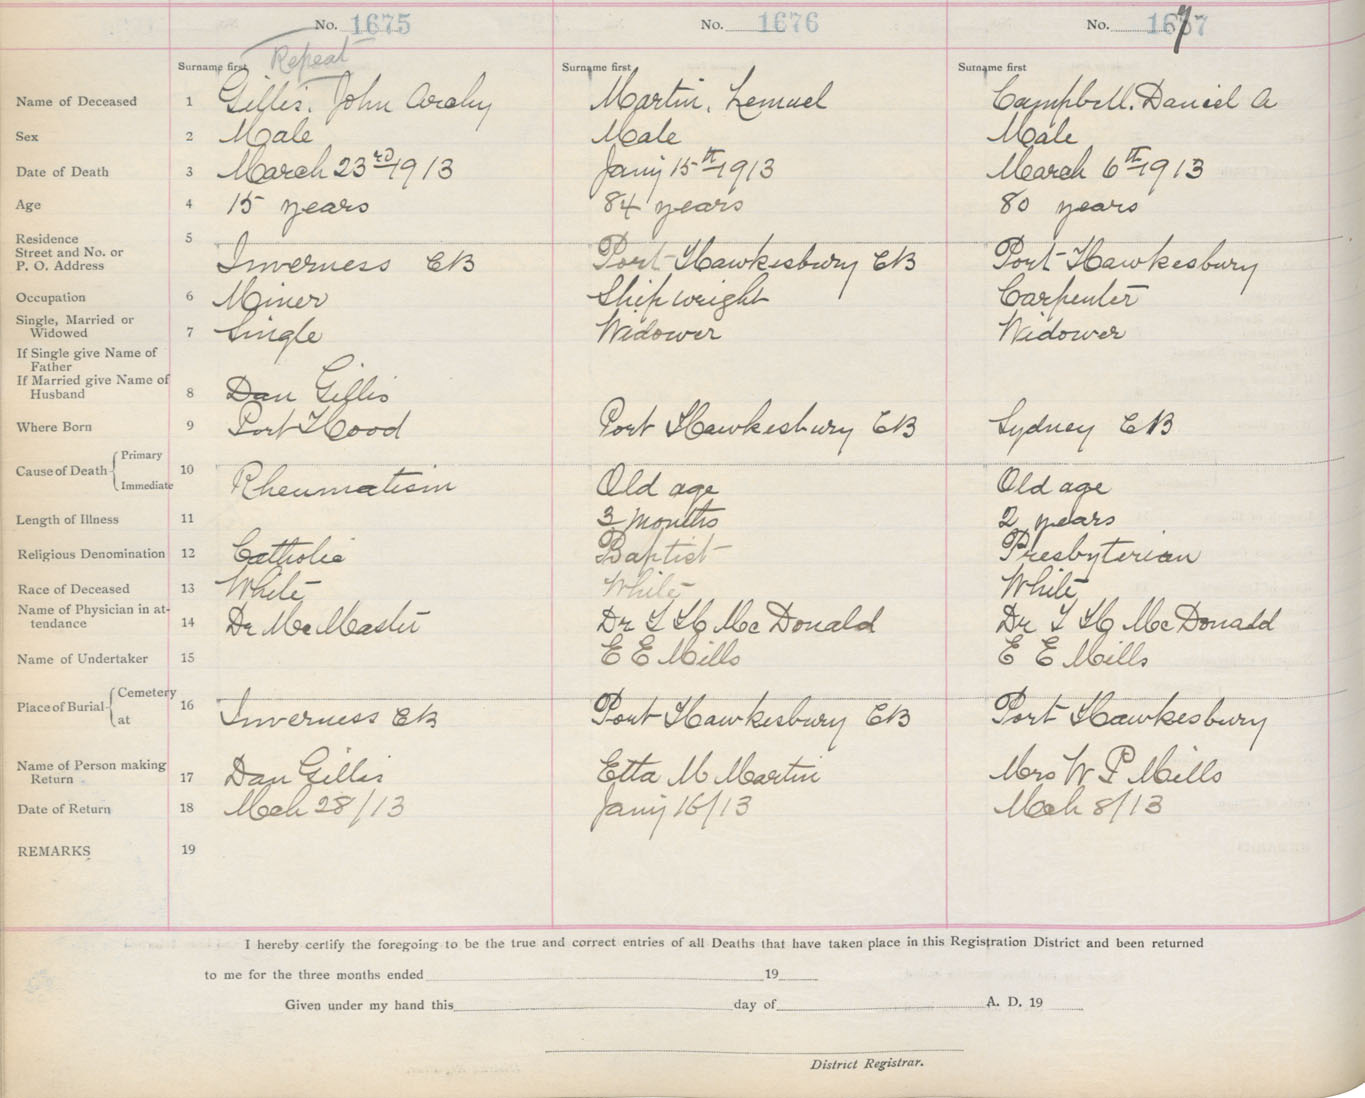 No. 1675 No. 1676 No. 1677
Repeat
Surname first Surname first Surname first
Name of Deceased 1 Gillis, John Archy Martin, Lemuel Campbell, Daniel A
Sex 2 Male Male Male
Date of Death 3 March 23rd 1913 Jany 15th 1913 March 6th 1913
Age 4 15 years 84 years 80 years
Residence 5
Street and No. or
P. O. Address Inverness CB Port Hawkesbury CB Port Hawkesbury
Occupation 6 Miner Shipwright Carpenter
Single, Married or
Widowed 7 Single Widower Widower
If Single give Name of
Father
If Married give Name of
Husband 8 Dan Gillis
Where Born 9 Port Hood Port Hawkesbury CB Sydney CB
Cause of Death { Primary
Immediate 10 Rheumatism Old age Old age
Length of Illness 11 3 months 2 years
Religious Denomination 12 Catholic Baptist Presbyterian
Race of Deceased 13 White White White
Name of Physician in at-
tendance 14 Dr McMaster Dr L H McDonald Dr L H McDonald
Name of Undertaker 15 E E Mills E E Mills
Place of Burial { Cemetery
at 16 Inverness CB Port Hawkesbury CB Port Hawkesbury
Name of Person making
Return 17 Dan Gillis Etta M Martin Mrs W P Mills
Date of Return 18 Mch 28/13 Jany 16/13 Mch 8/13
REMARKS 19
I hereby certify the foregoing to be the true and correct entries of all Deaths that have taken place in this Registration District and been returned
to me for the three months ended 19
Given under my hand this day of A. D. 19
District Registrar.